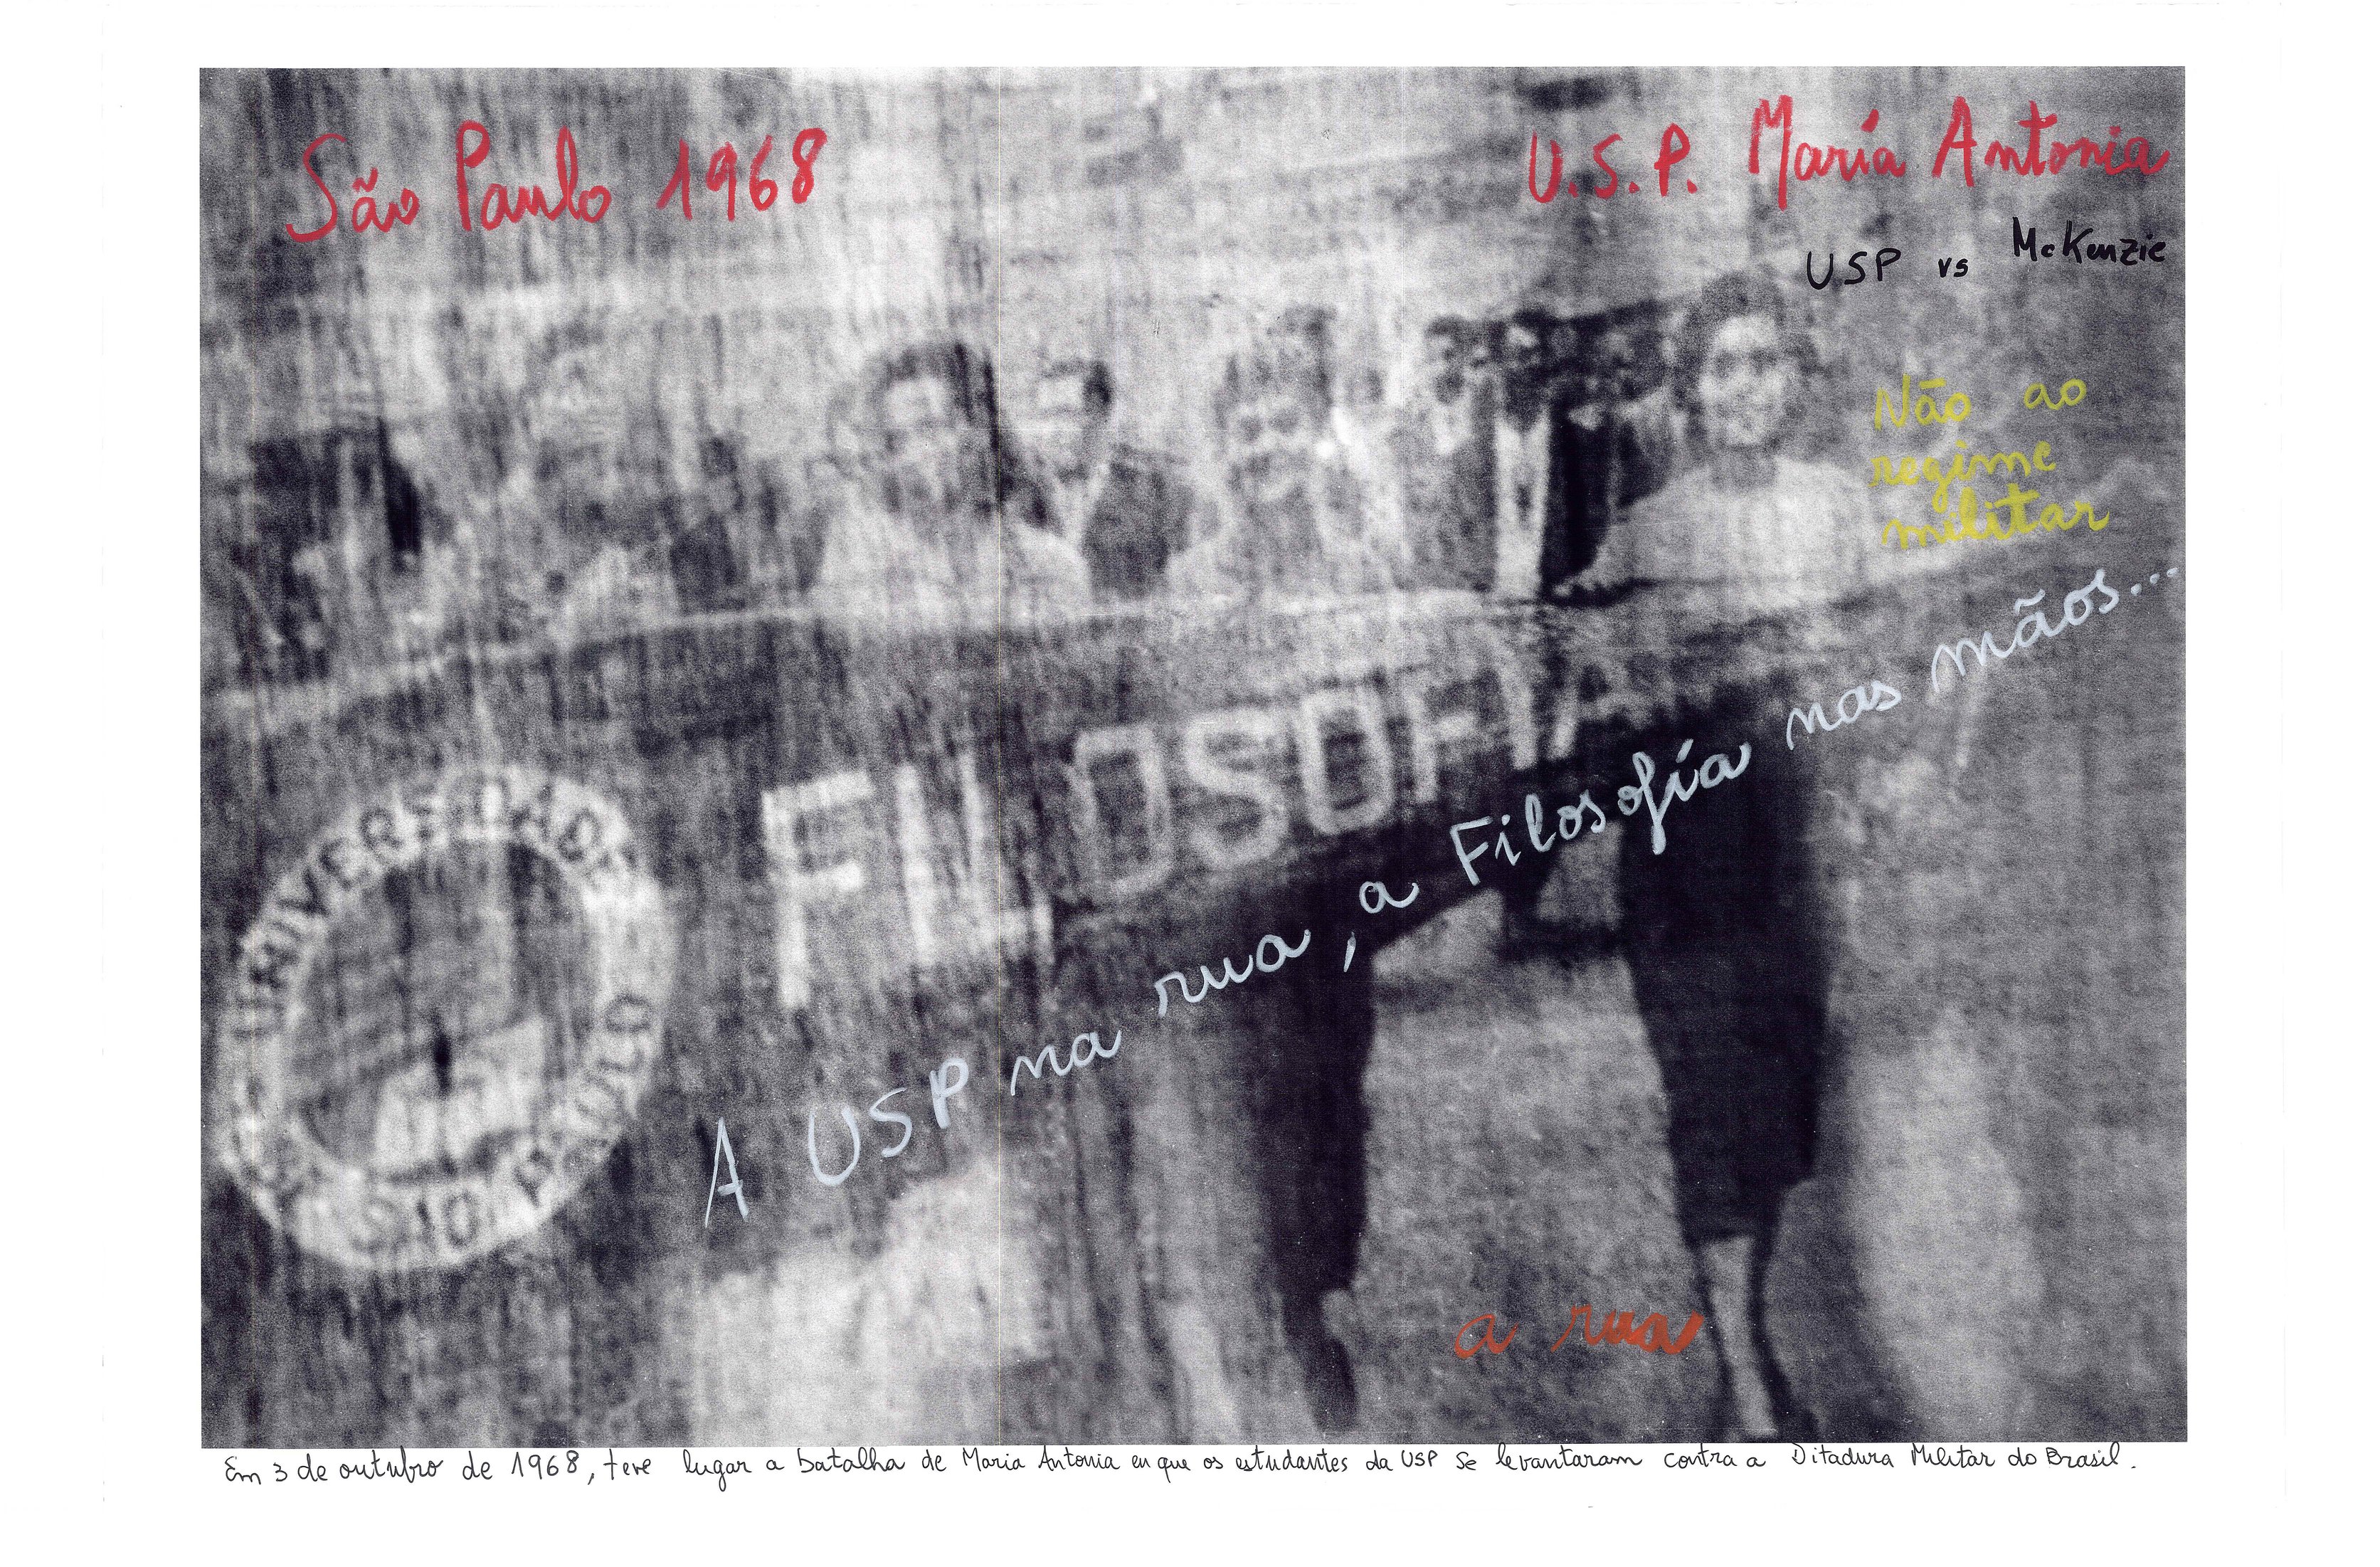 São Paulo 1968
U.S.P. María Antonia
USP vs McKenzie
Não ao
regime
militar
FILOSOFIA
UNIVERSIDADE
SÃO PAULO
A USP na rua, a Filosofía nas mãos...
a rua
Em 3 de outubro de 1968, teve lugar a batalha de Maria Antonia en que os estudantes da USP se levantaram contra a Ditadura Militar do Brasil.